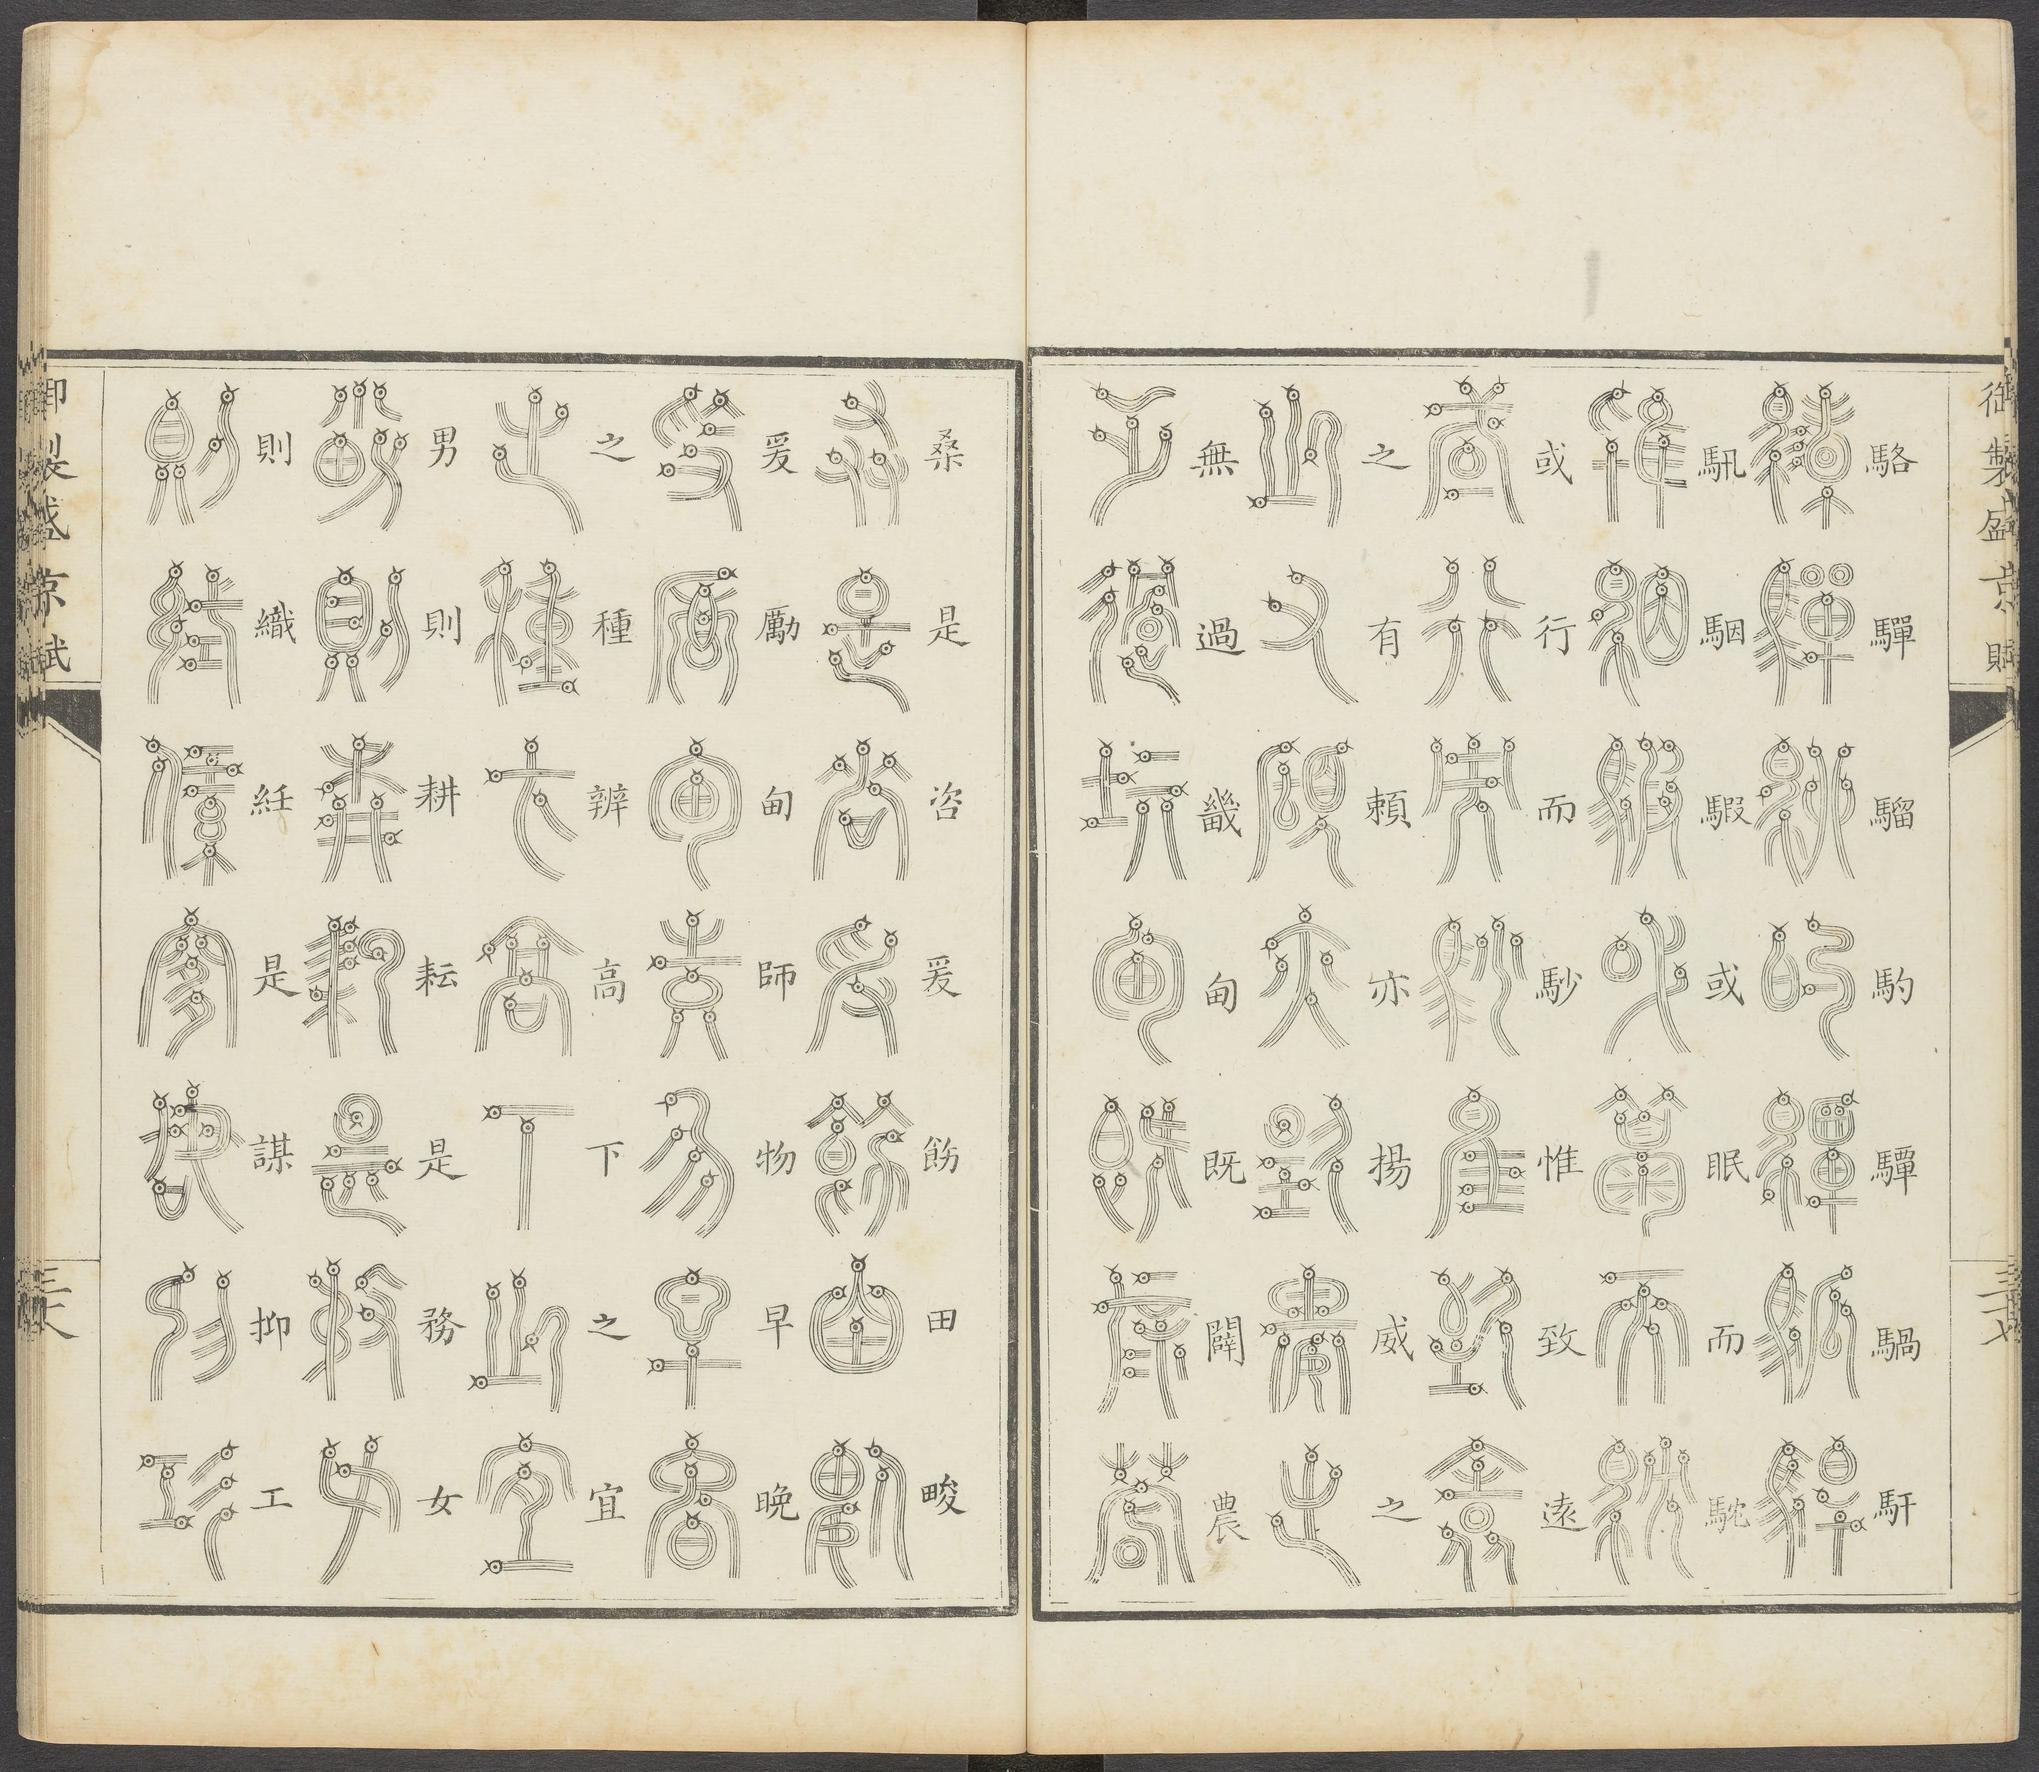 御製盛京賦
駱驒騮馰驔騧馯
馸駰騢或眠而駾
或行而馺惟致遠
之有賴亦揚威之
無過畿甸既闢農
三十七
桑是咨爰飭田畯
爰勵甸師物早晚
之種辨高下之宜
男則耕耘是務女
則織紝是謀抑工
御製盛京賦